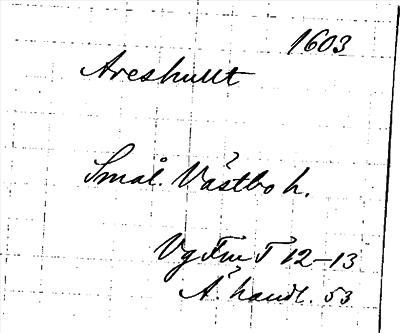 1603
Areshult
Smål. Västbo h.
Vg Fm T 12-13
Ä. handl. 53